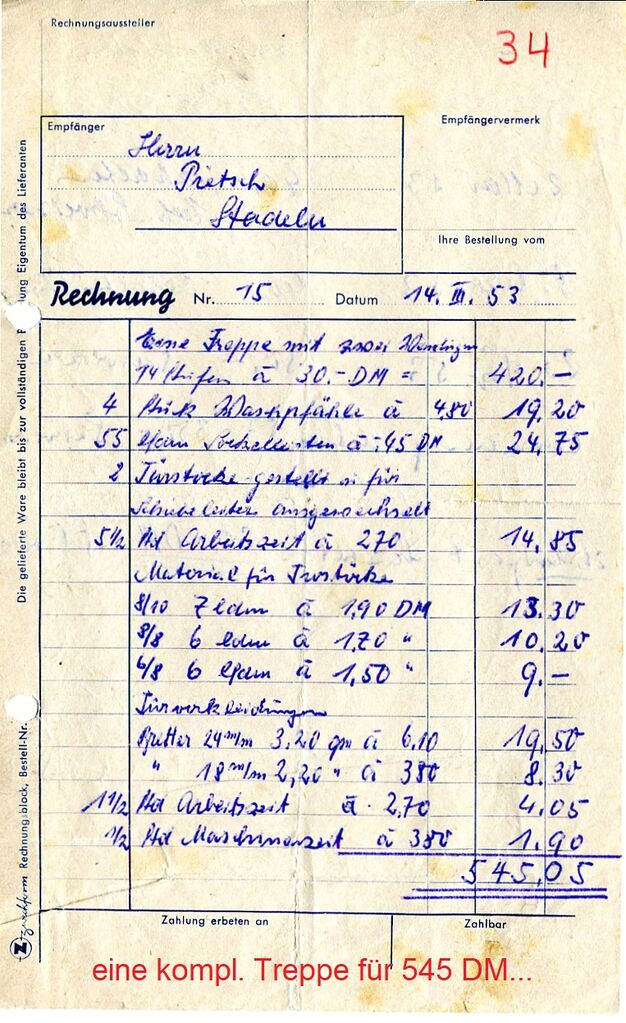 Rechnungsaussteller
34
Empfänger
Empfängervermerk
Herrn
Pietsch
Stadeln
Ihre Bestellung vom
Rechnung Nr. 15 Datum 14. III. 53
Eine Treppe mit zwei
14 Stufen à 30.- DM = 420.—
4 Stück à 4,80 19,20
55 lfdm Sockelleisten à -.45 DM 24,75
2 Türstöcke gestellt u. für
ausgewechselt
5 1/2 Std Arbeitszeit à 2,70 14,85
Material für Türstöcke
8/10 7 lfdm à 1,90 DM 13.30
8/8 6 lfdm à 1,70 " 10.20
6/8 6 lfdm à 1,50 " 9.—
Türverkleidungen
Bretter 24 m/m 3,20 qm à 6,10 19,50
" 18 m/m 2,20 " à 3,80 8.30
1 1/2 Std Arbeitszeit à 2,70 4.05
1/2 Std Maschinenzeit à 3,80 1.90
545,05
Zahlung erbeten an
Zahlbar
eine kompl. Treppe für 545 DM...
Die gelieferte Ware bleibt bis zur vollständigen Eigentum des Lieferanten
Z zweckform Rechnungsblock, Bestell-Nr.